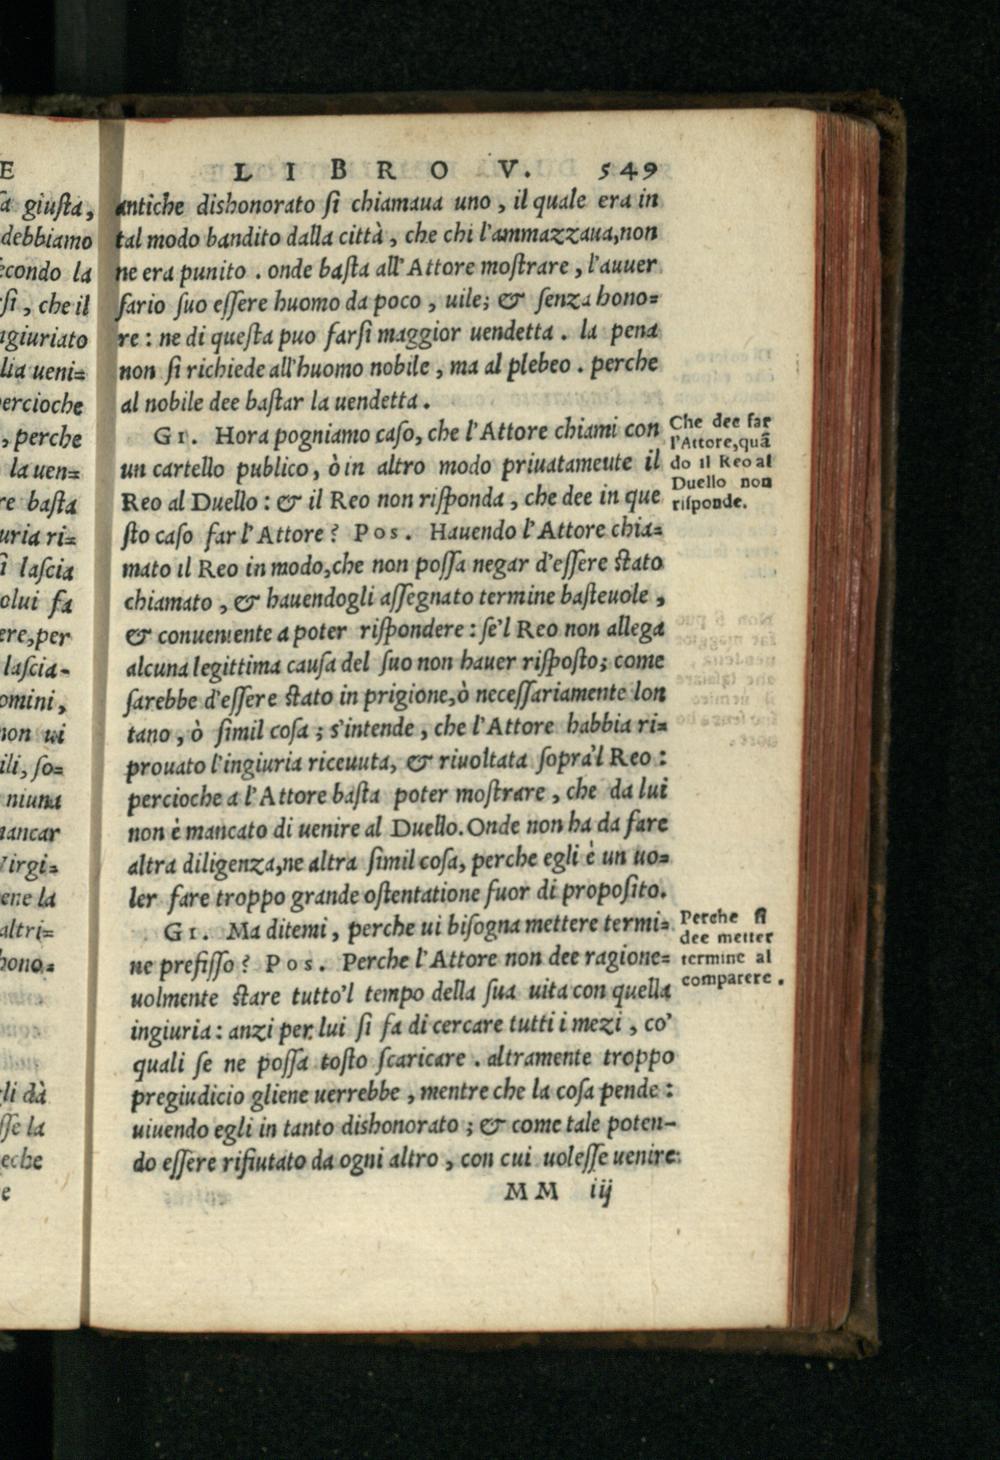 LIBRO V. 549
antiche dishonorato ſi chiamaua uno, il quale era in
tal modo bandito dalla città, che chi l'ammazzaua, non
ne era punito. onde baſta all'Attore moſtrare, l'auuer
ſario ſuo eſſere huomo da poco, uile; & ſenza hono=
re: ne di queſta puo farſi maggior uendetta. la pena
non ſi richiede all'huomo nobile, ma al plebeo. perche
al nobile dee baſtar la uendetta.
GI. Hora pogniamo caſo, che l'Attore chiami con
un cartello publico, ò in altro modo priuatameute il
Reo al Duello: & il Reo non riſponda, che dee in que
ſto caſo far l'Attore? POS. Hauendo l'Attore chia=
mato il Reo in modo, che non poſſa negar d'eſſere ſtato
chiamato, & hauendogli aſſegnato termine baſteuole,
& conueniente a poter riſpondere: ſe'l Reo non allega
alcuna legittima cauſa del ſuo non hauer riſpoſto; come
ſarebbe d'eſſere ſtato in prigione, ò neceſſariamente lon
tano, ò ſimil coſa; s'intende, che l'Attore habbia ri=
prouato l'ingiuria riceuuta, & riuoltata ſopra'l Reo:
percioche a l'Attore baſta poter moſtrare, che da lui
non è mancato di uenire al Duello. Onde non ha da fare
altra diligenza, ne altra ſimil coſa, perche egli è un uo=
ler fare troppo grande oſtentatione fuor di propoſito.
GI. Ma ditemi, perche ui biſogna mettere termi=
ne prefiſſo? POS. Perche l'Attore non dee ragione=
uolmente ſtare tutto'l tempo della ſua uita con quella
ingiuria: anzi per lui ſi fa di cercare tutti i mezi, co'
quali ſe ne poſſa toſto ſcaricare. altramente troppo
pregiudicio gliene uerrebbe, mentre che la coſa pende:
uiuendo egli in tanto dishonorato; & come tale poten-
do eſſere rifiutato da ogni altro, con cui uoleſſe uenire:
MM iij
Che dee far
l'Attore, quã
do il Reo al
Duello non
riſponde.
Perche ſi
dee metter
termine al
comparere.
E
ſa giuſta,
debbiamo
econdo la
ſi, che il
ngiuriato
lia ueni=
percioche
, perche
la uen=
re baſta
uria ri=
i laſcia
olui fa
ere, per
laſcia-
omini,
non ui
ili, ſo=
niuna
mancar
Virgi=
ene la
altri=
hono=
gli dà
ſſe la
eche
e